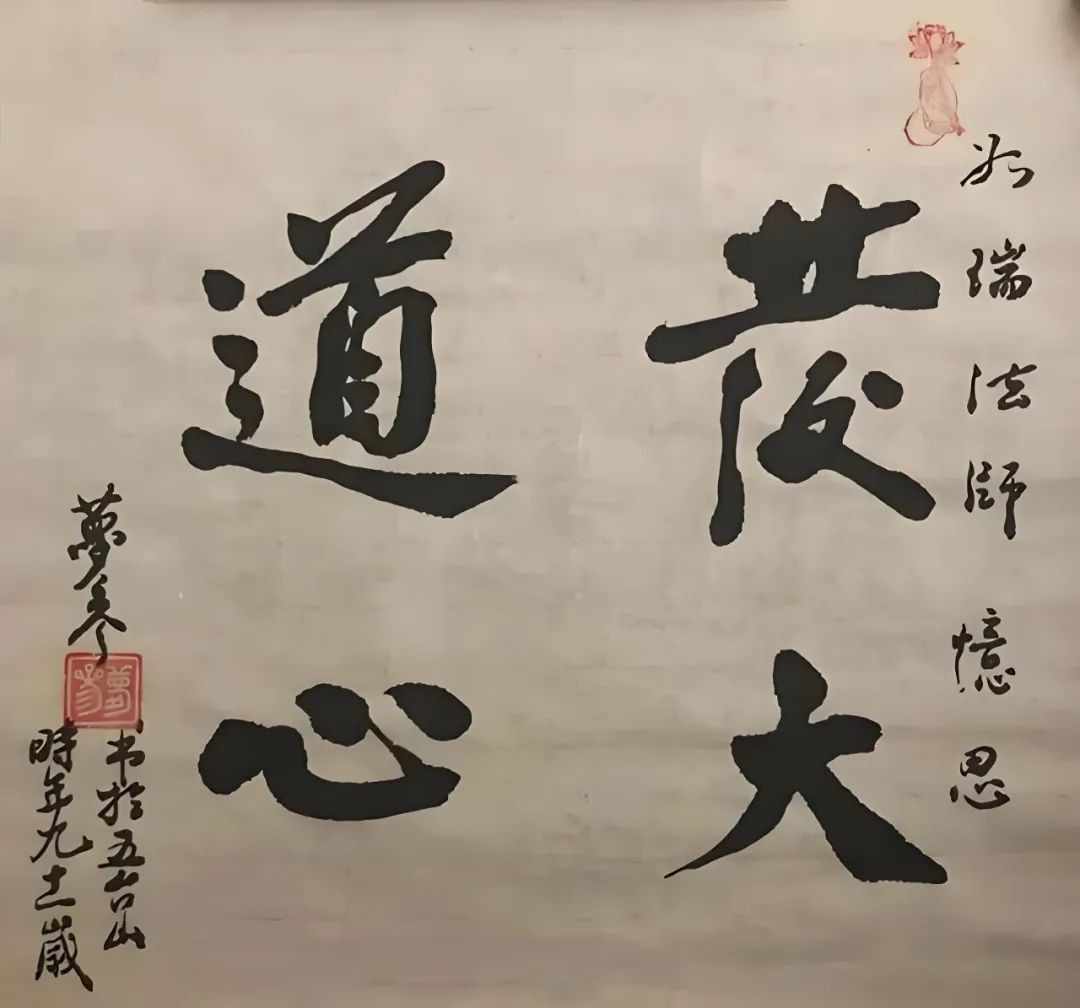 如瑞法師 憶思
發大
道心
夢參
书於五台山
時年九十一歲
夢參